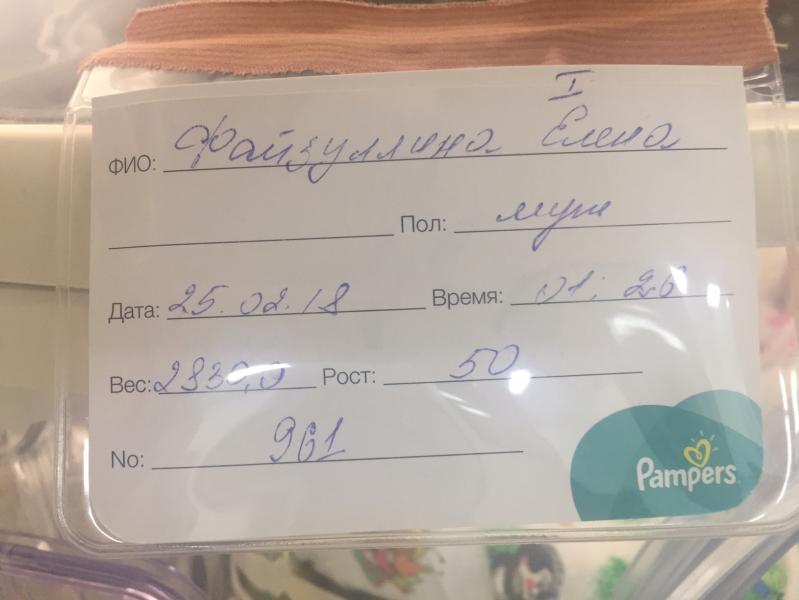 I
ФИО: Файзуллина Елена
Пол: муж
Дата: 25.02.18 Время: 01:26
Вес: 2930,0 Рост: 50
No: 961
Pampers